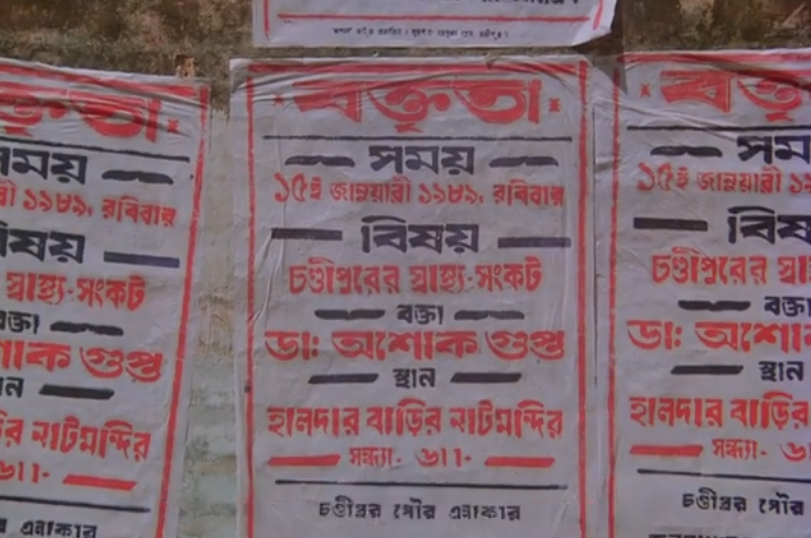 বক্তৃতা
সময়
১৫ই জানুয়ারী ১৯৮৯, রবিবার
বিষয়
চণ্ডীপুরের স্বাস্থ্য-সংকট
বক্তা
ডাঃ অশোক গুপ্ত
স্থান
হালদার বাড়ির নাটমন্দির
সন্ধ্যা- ৬৷৷-
চণ্ডীপুর পৌর এলাকার
ক্তৃতা
সময়
রী ১৯৮৯, রবিবার
বিষয়
স্বাস্থ্য-সংকট
বক্তা
শোক গুপ্ত
ান
র নাটমন্দির
৬৷৷-
র এলাকার
বক্তৃ
সম
১৫ই জানুয়ারী ১৯
বিষ
চণ্ডীপুরের স্বা
বক্তা
ডাঃ অশো
স্থান
হালদার বাড়ির
সন্ধ্যা- ৬
চণ্ডীপুর পৌর